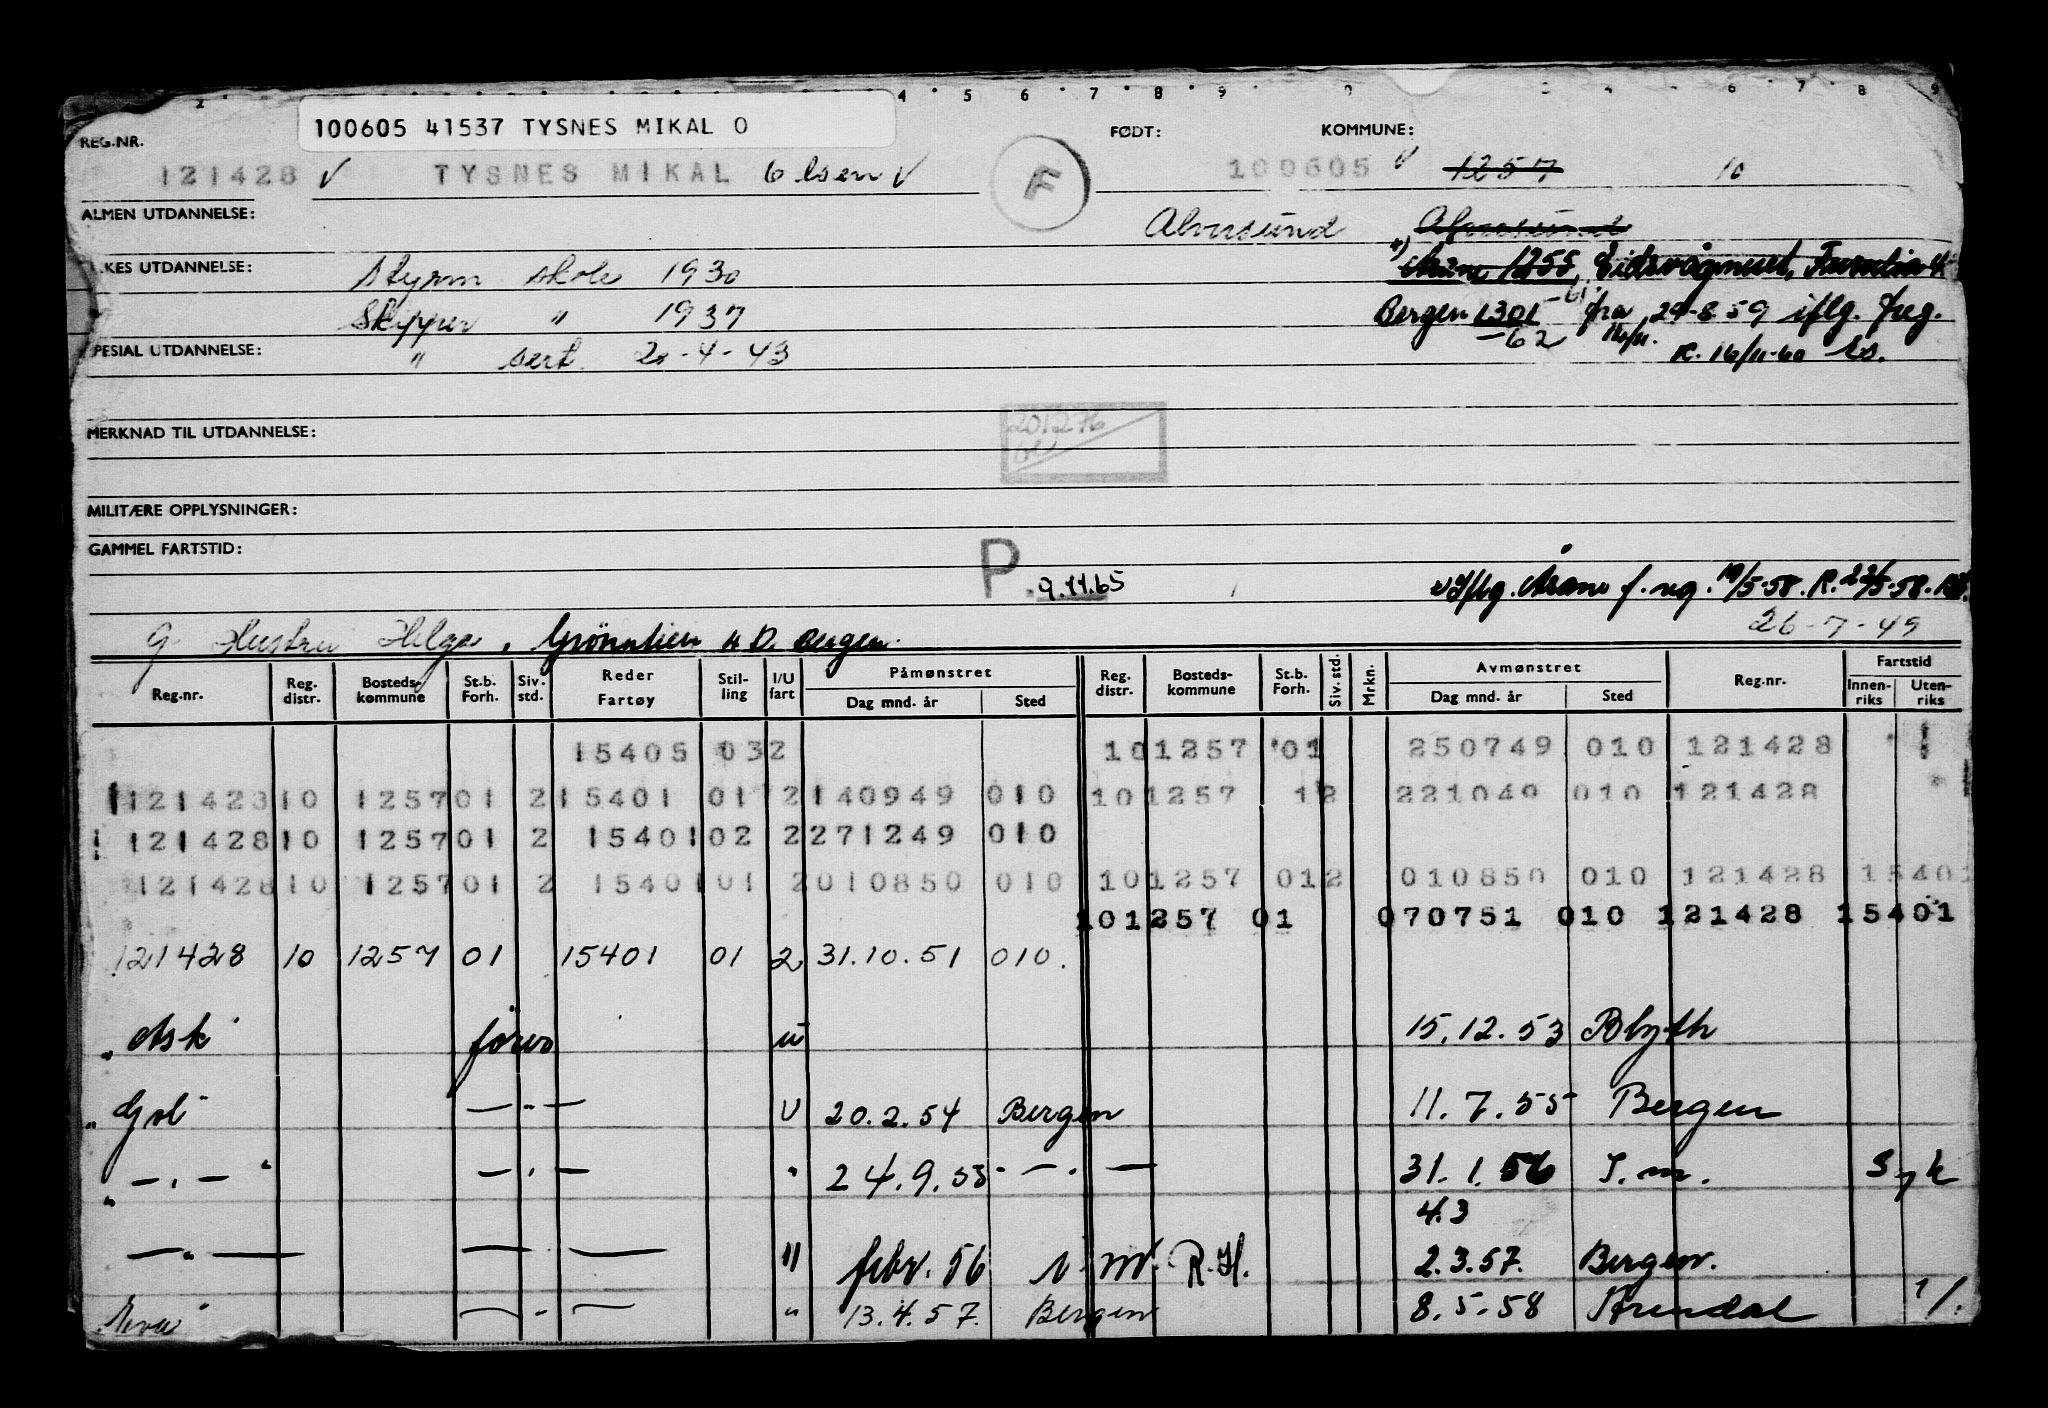 100605 41537 TYSNES MIKAL O
REG.NR. FØDT: KOMMUNE:
121428 V TYSNES MIKAL Olsen V F 100605 V 1257 10
ALMEN UTDANNELSE: Alversund Alversund
KES UTDANNELSE: Styrm skole 1930 1255, Eidsvågneset,
Skipper " 1937 Bergen 1301 -61. fra 29-8.59 iflg. freg.
PESIAL UTDANNELSE: " sert. 20-4-43 -62 R. 16/11-60
MERKNAD TIL UTDANNELSE: 201276
MILITÆRE OPPLYSNINGER:
GAMMEL FARTSTID:
P. 9.11.65 Iflg. Åsane f. reg. 19/5-58. R. 22/5-58.
26-7-49
G Hustru Helga, Grönnlien 4 D. Bergen.
Reg.nr. Reg. distr. Bosteds-kommune St.b. Forh. Siv. std. Reder Fartøy Stil-ling I/U fart Påmønstret Dag mnd. år Sted Reg. distr. Bosteds-kommune St.b. Forh. Siv. std. Mrkn. Avmønstret Dag mnd. år Sted Reg.nr. Fartstid Innen-riks Uten-riks
15405 032 10 1257 01 250749 010 121428 1
121428 10 1257 01 2 15401 01 2 140949 010 10 1257 12 221049 010 121428
121428 10 1257 01 2 15401 02 2 271249 010
121428 10 1257 01 2 15401 01 2 010850 010 10 1257 01 2 010850 010 121428 15401
10 1257 01 070751 010 121428 15401
121428 10 1257 01 15401 01 2 31.10.51 010.
"Ask" förer u 15.12.53 Blyth
"Gol" — " — U 20.2.54 Bergen 11.7.55 Bergen
" — . — " — . — " 24.9.55 — . — 31.1.56 T.m. Syk
4.3
— " — — — " febr. 56 R.H. 2.3.57. Bergen.
— . — " 13.4.57. Bergen 8.5.58 Arendal 1/.